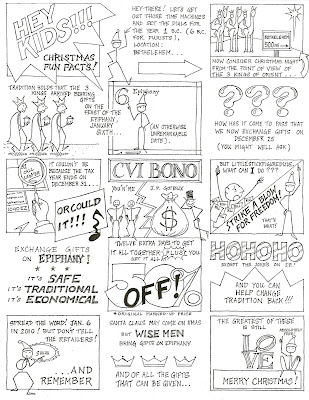 HEY
KIDS!!!
CHRISTMAS
FUN FACTS!
HEY THERE! LET'S GET
OUT THOSE TIME MACHINES
AND SET THE DIALS FOR
THE YEAR 1 B.C. (6 B.C.
FOR PURISTS),
LOCATION:
BETHLEHEM...
BETHLEHEM
NOW CONSIDER CHRISTMAS NIGHT
FROM THE POINT OF VIEW OF
THE 3 KINGS OF ORIENT...
TRADITION HOLDS THAT THE 3
KINGS ARRIVED BEARING
GIFTS
ON THE
FEAST OF THE
EPIPHANY,
JANUARY
SIXTH
6 Epiphany
(AN OTHERWISE
UNREMARKABLE
DATE)
???
HOW HAS IT COME TO PASS THAT
WE NOW EXCHANGE GIFTS ON
DECEMBER 25
(YOU MIGHT WELL ASK)
IT COULDN'T
BE BECAUSE THE TAX
YEAR ENDS ON
DECEMBER 31...
OR COULD
IT!!!!
CVI BONO
YOU'N ME
J.P. GOTBUX
$
BUT LITTLE STICK FIGURE DUDE,
WHAT CAN I DO???
STRIKE A BLOW
FOR FREEDOM!
THAT'S
WHAT!
EXCHANGE GIFTS
ON EPIPHANY!
IT'S SAFE
IT'S TRADITIONAL
IT'S ECONOMICAL
TWELVE EXTRA DAYS TO GET
IT ALL TOGETHER (PLUS YOU
GET IT ALL AT
%
OFF!*
* ORIGINAL MARKED-UP PRICE
HO HO HO
EXCEPT THE JOKE'S ON
AND YOU CAN
HELP CHANGE
TRADITION BACK!!!
SPREAD THE WORD! JAN. 6
IN 2010! BUT DON'T TELL
THE RETAILERS!
...AND
REMEMBER
SANTA CLAUS MAY COME ON XMAS
BUT WISE MEN
BRING GIFTS ON EPIPHANY
AND OF ALL THE GIFTS
THAT CAN BE GIVEN...
THE GREATEST OF THESE
IS STILL
ABSOLUTELY
FREE
LOVE
MERRY CHRISTMAS!